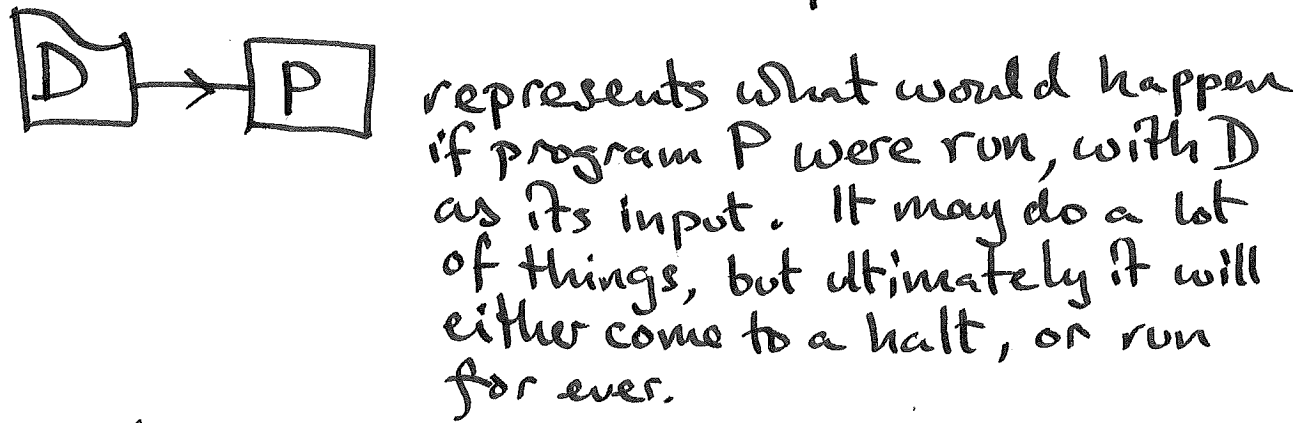 D P
represents what would happen
if program P were run, with D
as its input. It may do a lot
of things, but ultimately it will
either come to a halt, or run
for ever.